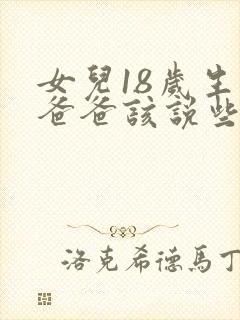 女兒18歲生
爸爸該說些
洛克希德馬丁